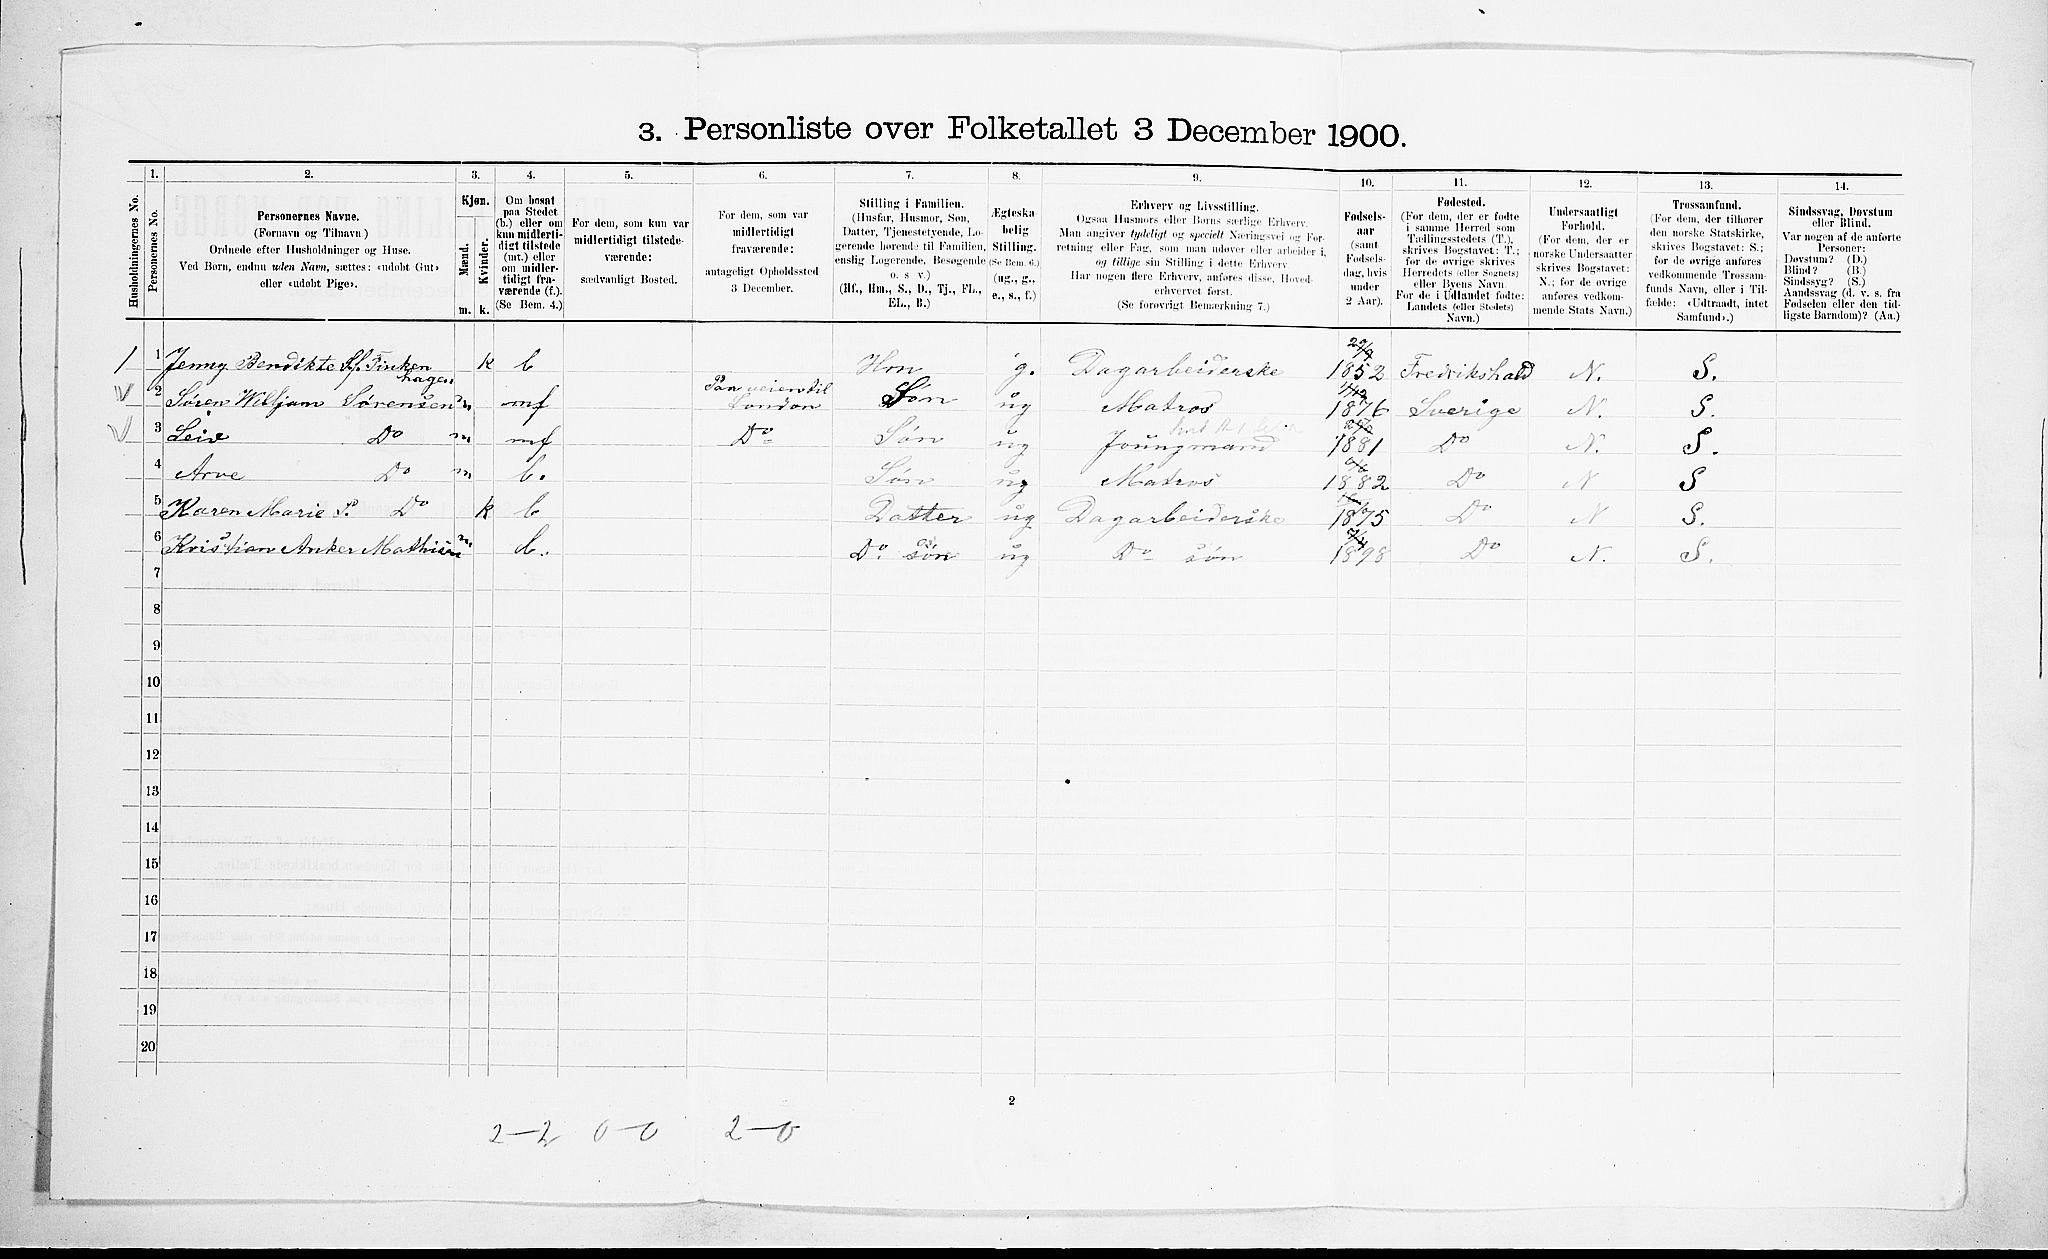 3. Personliste over Folketallet 3 December 1900.
1. 2. 3. 4. 5. 6. 7. 8. 9. 10. 11. 12. 13. 14.
Husholdningernes No.
Personernes No.
Personernes Navne.
(Fornavn og Tilnavn)
Ordnede efter Husholdninger og Huse.
Ved Børn, endnu uden Navn, sættes: «udøbt Gut»
eller «udøbt Pige».
Kjøn.
Mænd.
Kvinder.
m. k.
Om bosat
paa Stedet
(b.) eller om
kun midlerti-
digt tilstede
(mt.) eller
om midler-
tidigt fra-
værende (f.)
(Se Bem. 4.)
For dem, som kun var
midlertidigt tilstede-
værende:
sædvanligt Bosted.
For dem, som var
midlertidigt
fraværende:
antageligt Opholdssted
3 December.
Stilling i Familien.
(Husfar, Husmor, Søn,
Datter, Tjenestetyende, Lo-
gerende hørende til Familien,
enslig Logerende, Besøgende
o. s v.)
(Hf., Hm., S., D., Tj., FL.,
EL., B.)
Ægteska-
belig
Stilling.
(Se Bem. 6.)
(ug., g.,
e., s., f.)
Erhverv og Livsstilling.
Ogsaa Husmors eller Børns særlige Erhverv.
Man angiver tydeligt og specielt Næringsvei og For-
retning eller Fag, som man udøver eller arbeider i,
og tillige sin Stilling i dette Erhverv
Har nogen flere Erhverv, anføres disse, Hoved-
erhvervet først.
(Se forøvrigt Bemærkning 7.)
Fødsels-
aar
(samt
Fødsels-
dag, hvis
under
2 Aar).
Fødested.
(For dem, der er fødte
i samme Herred som
Tællingsstedets (T.),
skrives Bogstavet: T.;
for de øvrige skrives
Herredets (eller Sognets)
eller Byens Navn.
For de i Udlandet fødte:
Landets (eller Stedets)
Navn.)
Undersaatligt
Forhold.
(For dem, der er
norske Undersaatter
skrives Bogstavet:
N.; for de øvrige
anføres vedkom-
mende Stats Navn.)
Trossamfund.
(For dem, der tilhører
den norske Statskirke,
skrives Bogstavet: S.;
for de øvrige anføres
vedkommende Trossam-
funds Navn, eller i Til-
fælde: «Udtraadt, intet
Samfund».)
Sindssvag, Døvstum
eller Blind.
Var nogen af de anførte
Personer:
Døvstum? (D.)
Blind? (B.)
Sindssyg? (S.)
Aandssvag (d. v. s. fra
Fødselen eller den tid-
ligste Barndom)? (Aa.)
1 1 Jenny Bendikte Finkenhagen k b Hm g. Dagarbeiderske 29/9 1852 Fredrikshald N. S.
2 Søren Willjam Sørensen m mf Paa veien til London Søn ug Matros 1876 Sverige N. S.
3 Leif Do m mf Do Søn ug Joungmand 1881 Do N. S.
4 Arve Do m b. Søn ug Matros 1882 Do N S
5 Karen Marie S. Do k b Datter ug Dagarbeiderske 1875 Do N S.
6 Kristian Anker Mathisen m b. Do søn ug Do søn 1898 Do N. S.
7
8
9
10
11
12
13
14
15
16
17
18
19
20
2
2–2 0–0 2–0